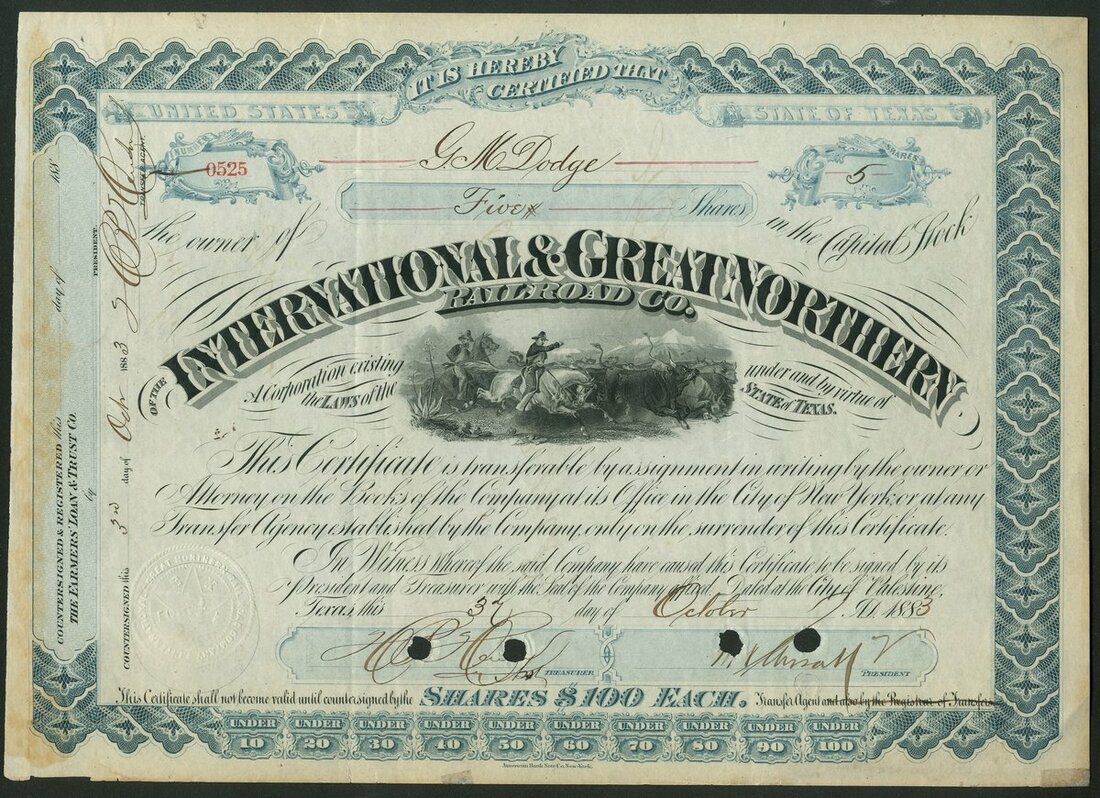 IT IS HEREBY
CERTIFIED THAT
UNITED STATES
STATE OF TEXAS
NUMBER
0525
G M Dodge
SHARES
5
Five
Shares
the owner of
in the Capital Stock
OF THE
INTERNATIONAL & GREAT NORTHERN
RAILROAD CO.
A Corporation existing
the LAWS of the
under and by virtue of
STATE OF TEXAS.
This Certificate is transferable by assignment in writing by the owner or
Attorney on the Books of the Company at its Office in the City of New York or at any
Transfer Agency established by the Company, only on the surrender of this Certificate.
In Witness Whereof the said Company have caused this Certificate to be signed by its
President and Treasurer with the Seal of the Company affixed. Dated at the City of Palestine,
Texas, this 3rd day of October A.D. 1883
TREASURER
PRESIDENT
This Certificate shall not become valid until countersigned by the
SHARES $100 EACH.
Transfer Agent and also by the Registrar of Transfers
UNDER 10
UNDER 20
UNDER 30
UNDER 40
UNDER 50
UNDER 60
UNDER 70
UNDER 80
UNDER 90
UNDER 100
American Bank Note Co. New York.
COUNTERSIGNED & REGISTERED this day of 188
THE FARMERS' LOAN & TRUST CO.
by PRESIDENT.
COUNTERSIGNED this 3rd day of Octr 1883
TRANSFER AGENT.